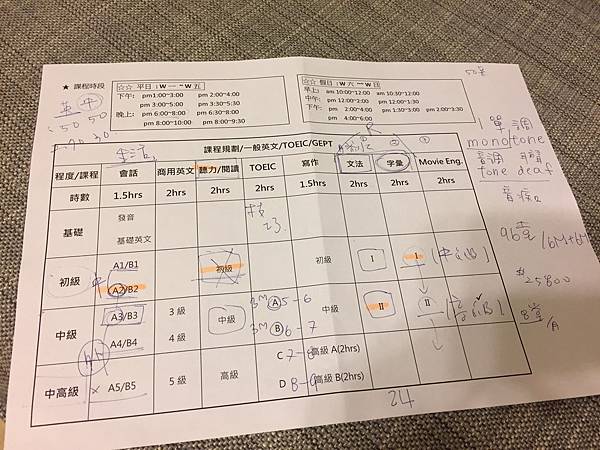 ★ 課程時段
☆☆ 平日：W 一 ~ W 五
下午： pm1:00~3:00 pm 2:00~4:00
pm 3:00~5:00 pm 3:30~5:30
晚上： pm 6:00~8:00 pm 6:30~8:30
pm 8:00~10:00 pm 8:00~9:30
☆☆ 假日：W 六 ~ W 日
早上： am 10:00~12:00 am 10:30~12:30
中午： pm 12:00~2:00 pm 12:00~1:30
下午： pm 2:00~4:00 pm 1:30~3:00 pm 2:00~3:30
pm 4:00~6:00
50 50
生活
課程規劃/一般英文/TOEIC/GEPT
② ①
程度/課程 會話 商用英文 聽力/閱讀 TOEIC 寫作 文法 字彙 Movie Eng.
時數 1.5hrs 2hrs 2hrs 2hrs 1.5hrs 2hrs 2hrs 2hrs
基礎 發音
基礎英文
初級 A1/B1 初級 初級 I I
A2/B2
中級 A3/B3 3 級 中級 3M A 5-6 中級 II II
A4/B4 4 級 3M B 6-7
中高級 × A5/B5 5 級 高級 C 7-8 高級 A(2hrs)
D 8-9 高級 B(2hrs)
24
單調
monotone
音調
tone deaf
音痴
96堂/6M+6M
$25800
8堂/A